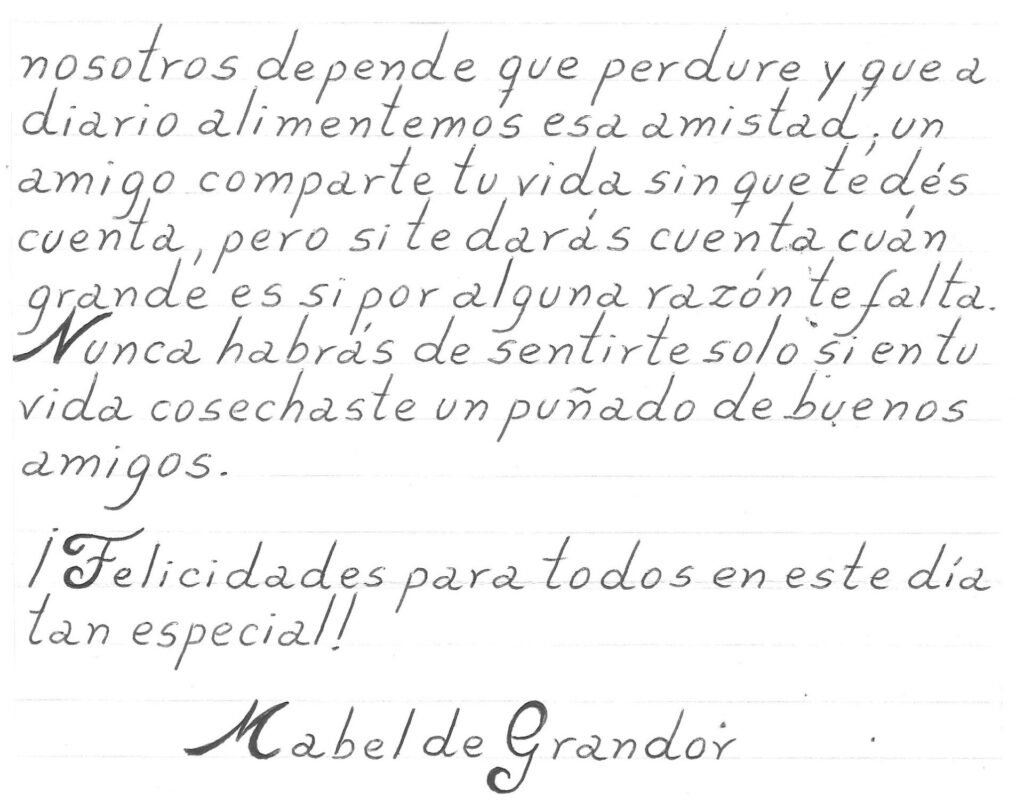 nosotros depende que perdure y que a
diario alimentemos esa amistad; un
amigo comparte tu vida sin que té dés
cuenta, pero si te darás cuenta cuán
grande es si por alguna razón te falta.
Nunca habrás de sentirte solo si en tu
vida cosechaste un puñado de buenos
amigos.
¡Felicidades para todos en este día
tan especial!
Mabel de Grandor